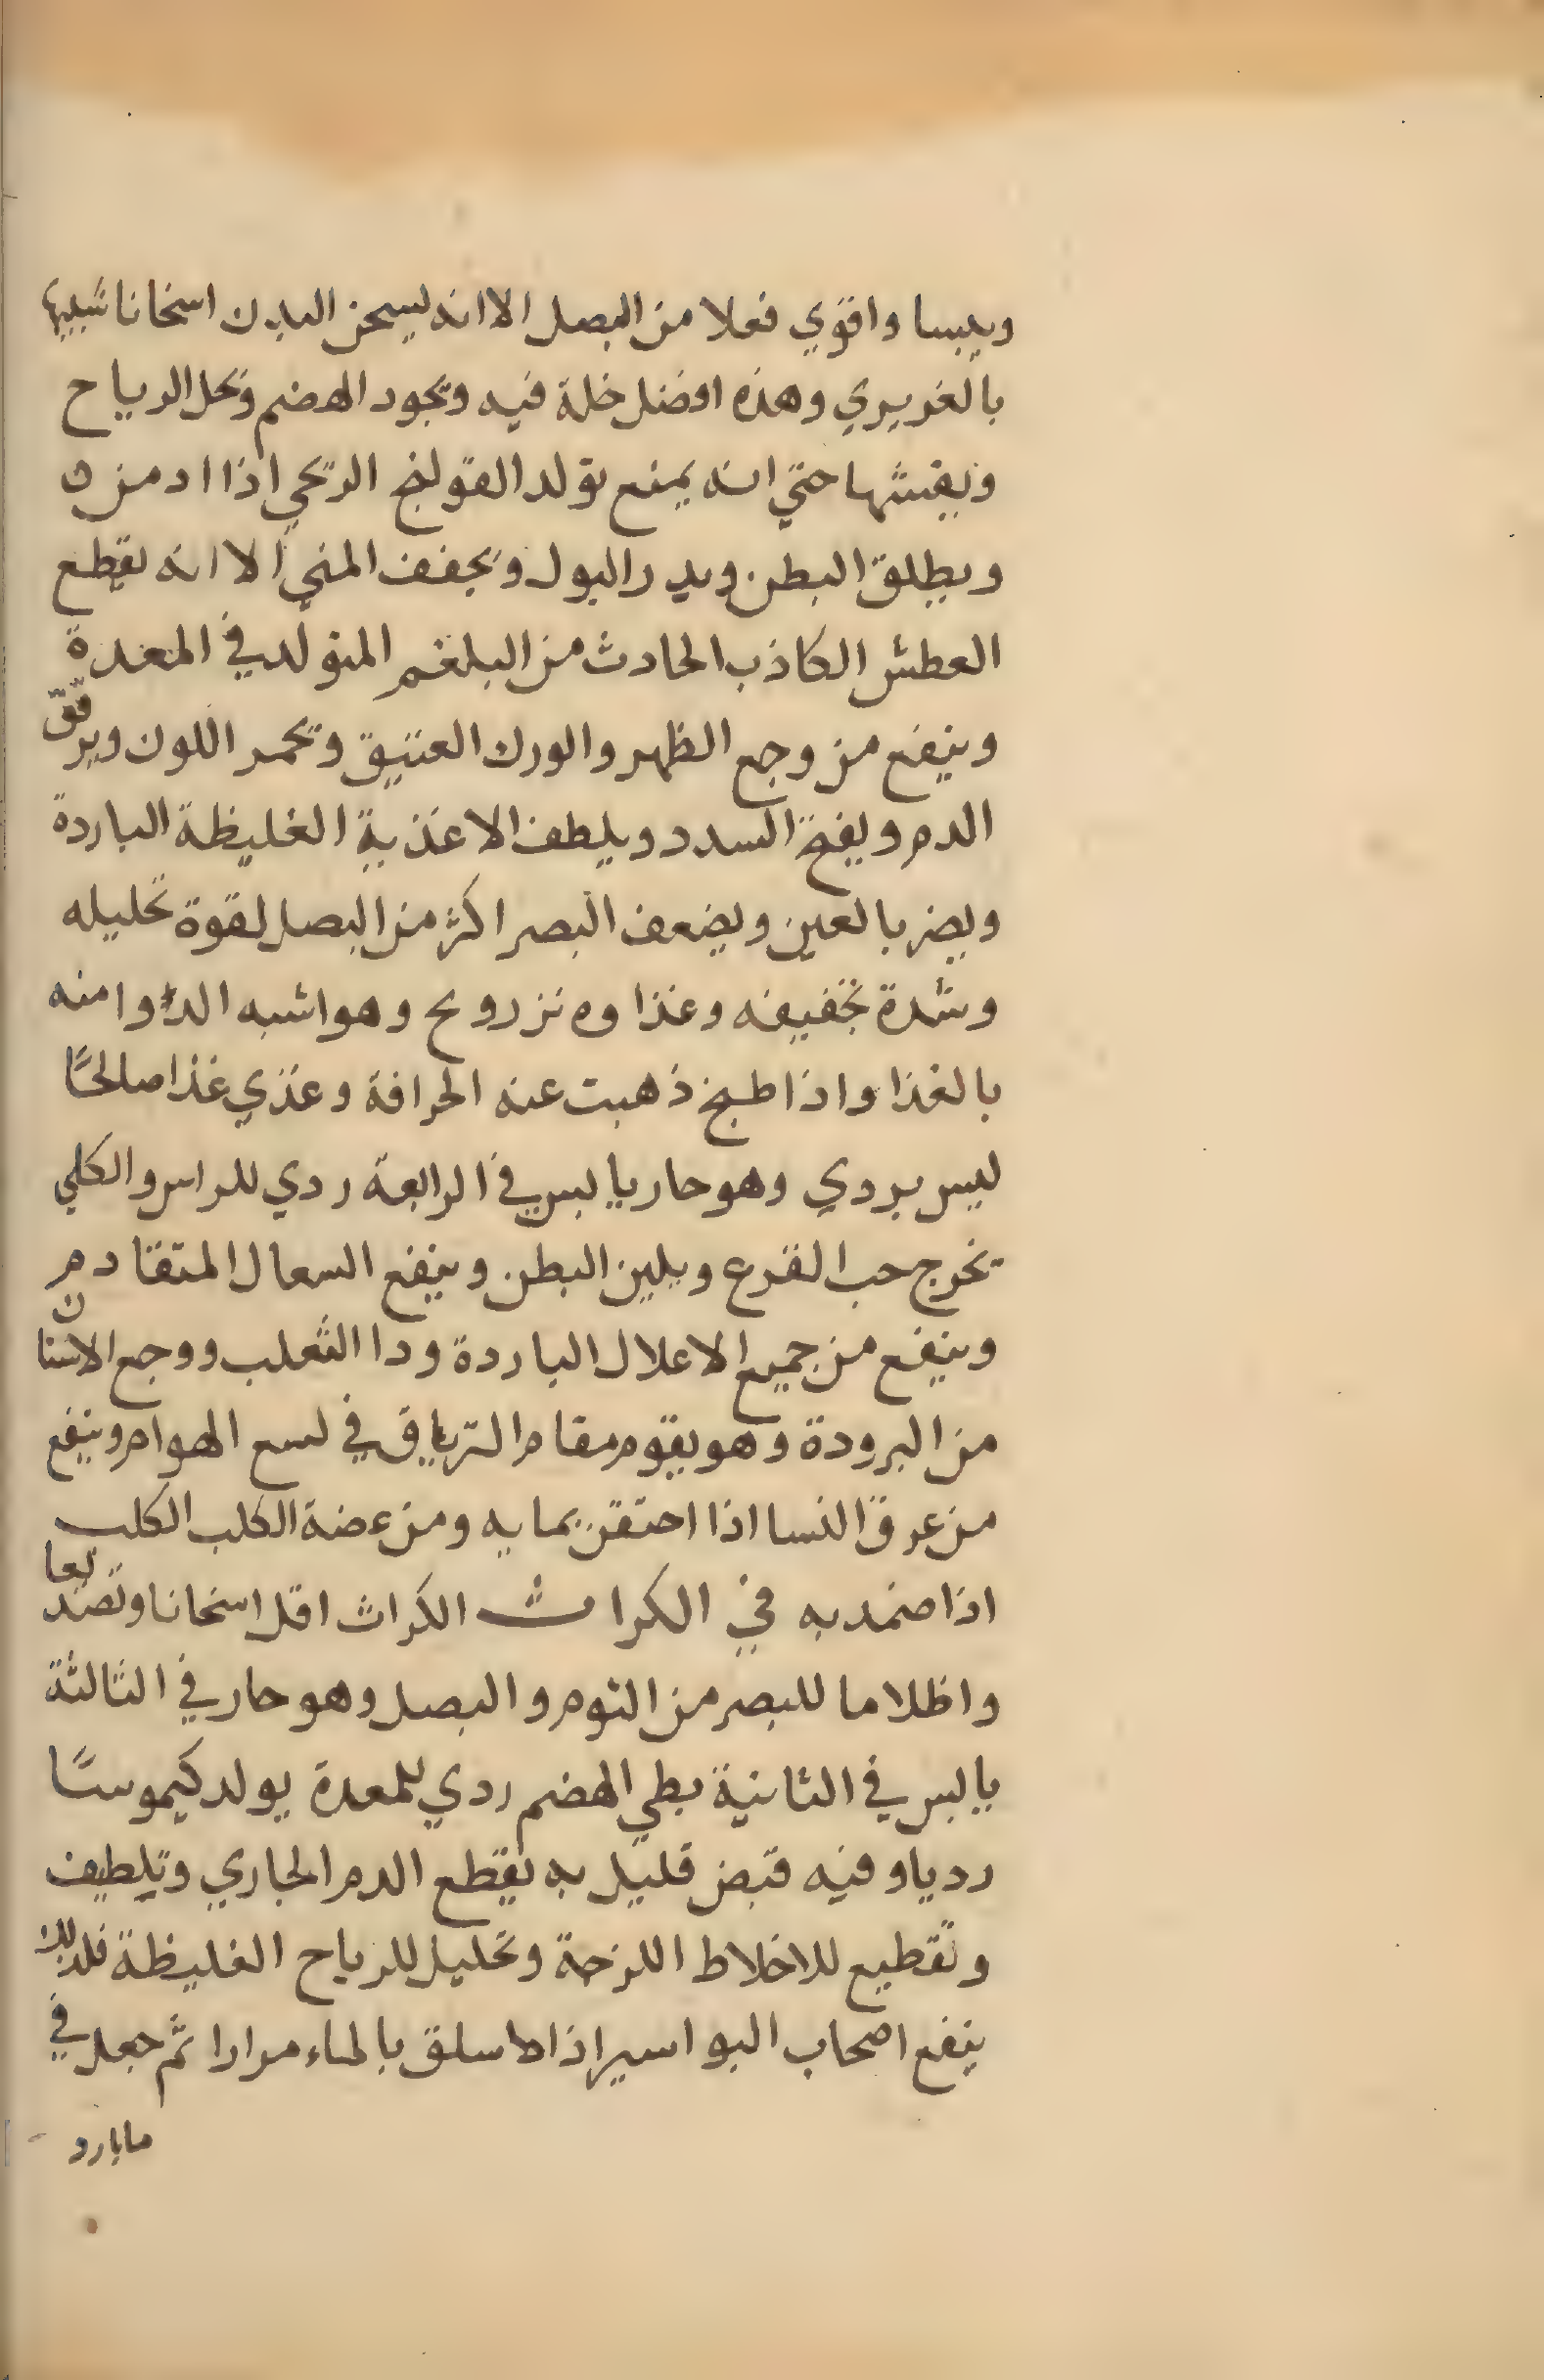 ويبسا واقوي فعلا من البصل الا انه ليسحن البدن اسخانا شبيها
بالغريري وهذه افضل خلة فيه ويجود الهضم ويحل الرياح
ويفشها حتي انه يمنع تولد القولنج الريحي اذا ادمن ه
ويطلق البطن ويدر البول ويجفف المني الا انه يقطع
العطش الكاذب الحادث من البلغم المتولد في المعدة
وينفع من وجع الظهر والورك العتيق ويحمر اللون ويرقق
الدم ويفتح السدد ويلطف الاغذية الغليظة الباردة
ويضر بالعين ويضعف البصر اكثر من البصل لقوة تحليله
وشدة تجفيفه وغذاوه نزر وبح وهو اشبه الدوا منه
بالغذا واذا طبخ ذهبت عنه الحرافة وغذي غذا صالحًا
ليس بردي وهو حار يابس في الرابعة ردي للراس والكلي
يخرج حب القرع ويلين البطن وينفع السعال المتقادم
وينفع من جميع الاعلال الباردة ودا الثعلب ووجع الاسنان
من البرودة وهو يقوم مقام الترياق في لسع الهوام وينفع
من عرق النسا اذا احتقن بمايه ومن عضة الكلب الكلب
اذا ضمد به في الكراث الكراث اقل اسخانا وتصدعا
واظلاما للبصر من الثوم والبصل وهو حار في الثالثة
يابس في الثانية بطي الهضم ردي للمعدة يولد كيموسًا
رديا وفيه قبض قليل به يقطع الدم الجاري وتلطيف
وتقطيع للاخلاط اللزجة وتحليل للرياح الغليظة فلذلك
ينفع اصحاب البواسير اذا سلق بالماء مرارا ثم جعل في
ما بارد